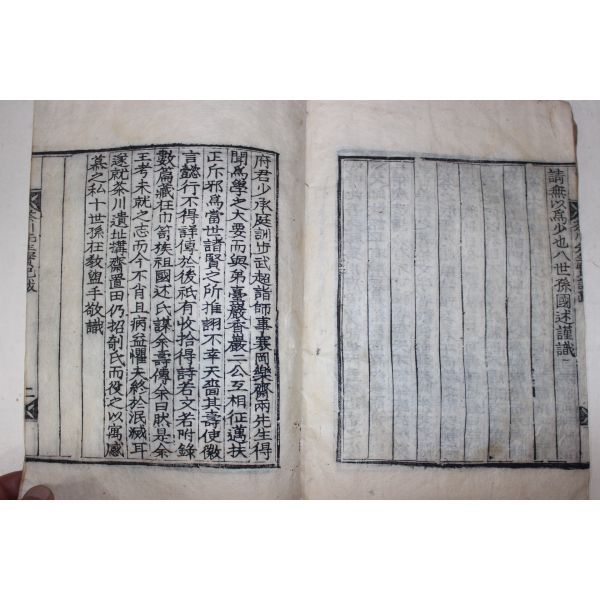 請無以爲少也八世孫國述謹識
府君少承庭訓步武趨詣師事寒岡樂齋兩先生得
聞爲學之大要而與弟臺巖香巖二公互相征邁扶
正斥邪爲當世諸賢之所推詡不幸天嗇其壽使徽
言懿行不得詳傳於後祇有收拾得詩若文若附錄
數篇藏在巾笥族祖國述氏謀余壽傳余曰此是余
王考未就之志而今不肖且病益懼未終於泯滅耳
遂就茶川遺址構齋置田仍招剞氏而役之以寓感
慕之私十世孫在敎盥手敬識